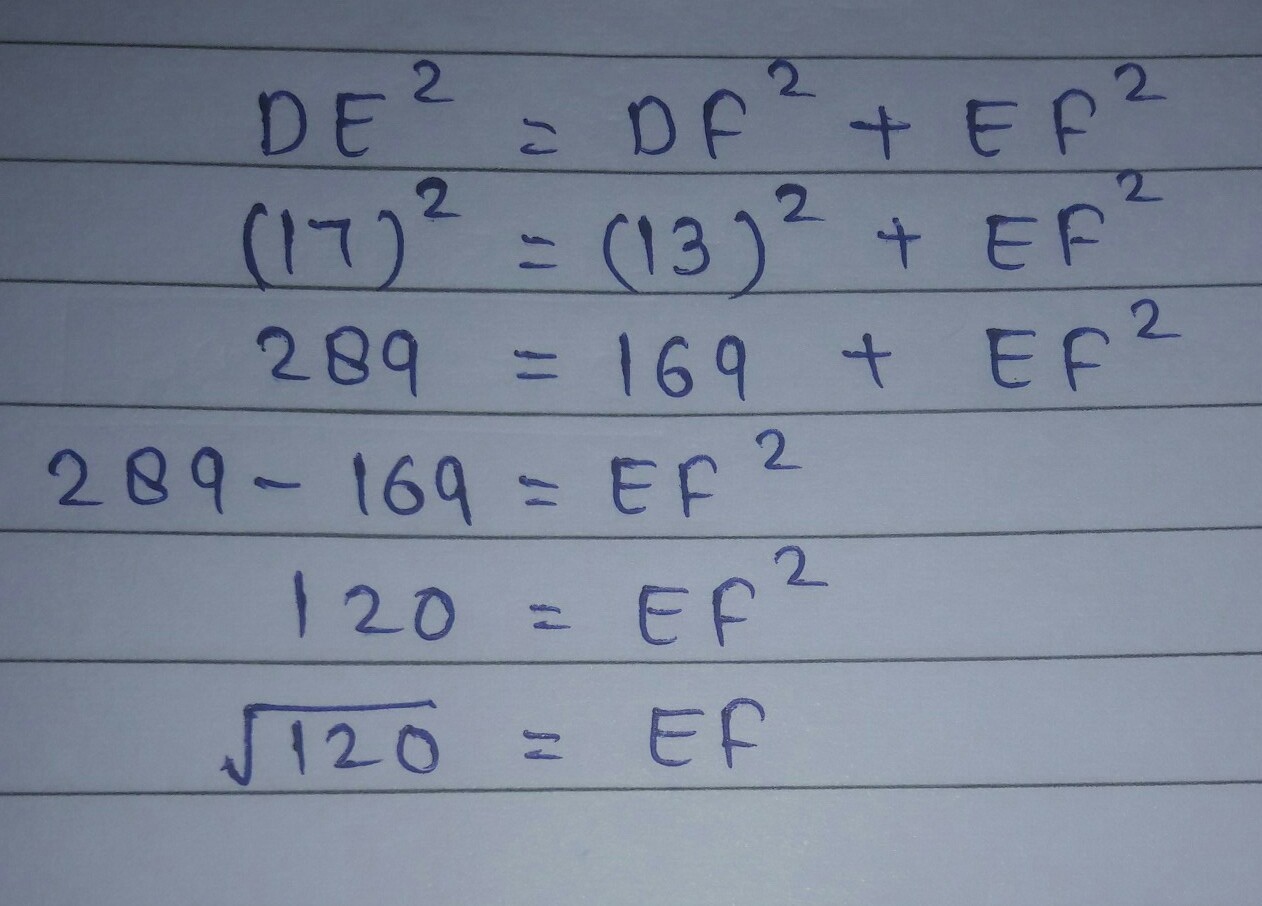 DE² = DF² + EF²
(17)² = (13)² + EF²
289 = 169 + EF²
289 - 169 = EF²
120 = EF²
√120 = EF